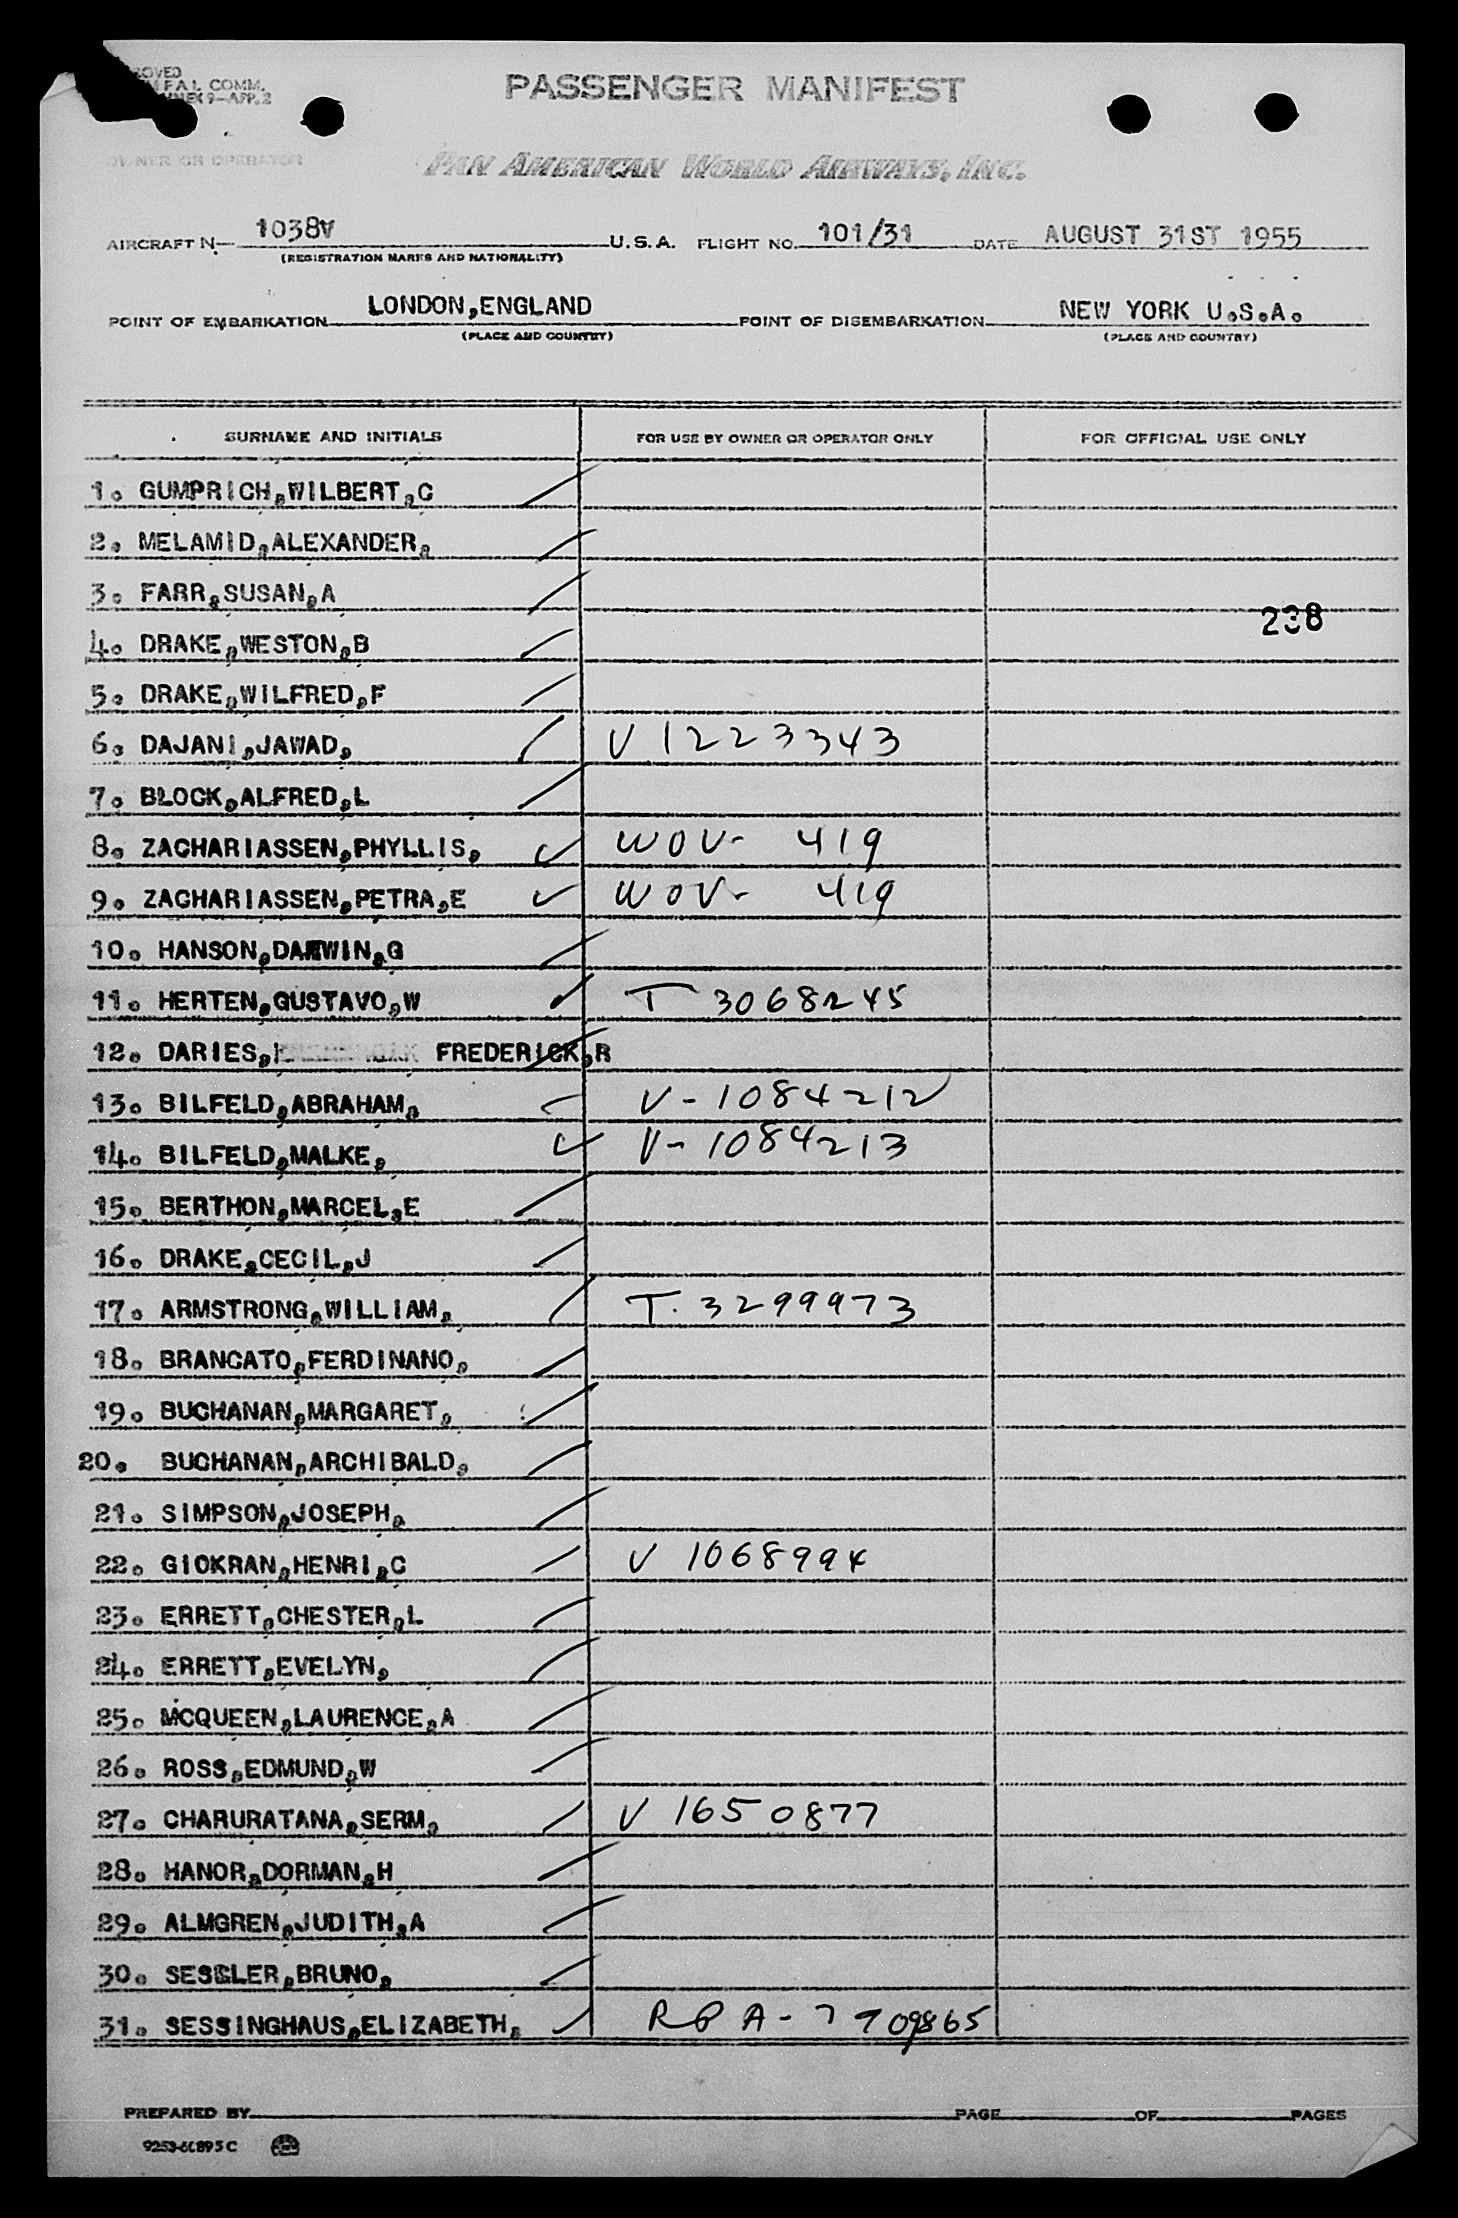 PASSENGER MANIFEST
F.A.L. COMM.
ANNEX 9-APP.2
OWNER OR OPERATOR
PAN AMERICAN WORLD AIRWAYS, INC.
AIRCRAFT N- 1038V U.S.A. FLIGHT NO. 101/31 DATE AUGUST 31ST 1955
(REGISTRATION MARKS AND NATIONALITY)
POINT OF EMBARKATION LONDON,ENGLAND POINT OF DISEMBARKATION NEW YORK U.S.A.
(PLACE AND COUNTRY) (PLACE AND COUNTRY)
SURNAME AND INITIALS FOR USE BY OWNER OR OPERATOR ONLY FOR OFFICIAL USE ONLY
1. GUMPRICH,WILBERT,C
2. MELAMID,ALEXANDER,
3. FARR,SUSAN,A
238
4. DRAKE,WESTON,B
5. DRAKE,WILFRED,F
6. DAJANI,JAWAD, V 1223343
7. BLOCK,ALFRED,L
8. ZACHARIASSEN,PHYLLIS, WOV- 419
9. ZACHARIASSEN,PETRA,E WOV- 419
10. HANSON,DARWIN,G
11. HERTEN,GUSTAVO,W T 3068245
12. DARIES, FREDERICK,R
13. BILFELD,ABRAHAM, V-1084212
14. BILFELD,MALKE, V-1084213
15. BERTHON,MARCEL,E
16. DRAKE,CECIL,J
17. ARMSTRONG,WILLIAM, T. 3299973
18. BRANCATO,FERDINANO,
19. BUCHANAN,MARGARET,
20. BUCHANAN,ARCHIBALD,
21. SIMPSON,JOSEPH,
22. GIOKRAN,HENRI,C V 1068994
23. ERRETT,CHESTER,L
24. ERRETT,EVELYN,
25. MCQUEEN,LAURENCE,A
26. ROSS,EDMUND,W
27. CHARURATANA,SERM, V 1650877
28. HANOR,DORMAN,H
29. ALMGREN,JUDITH,A
30. SESSLER,BRUNO,
31. SESSINGHAUS,ELIZABETH, RPA-7709865
PREPARED BY PAGE OF PAGES